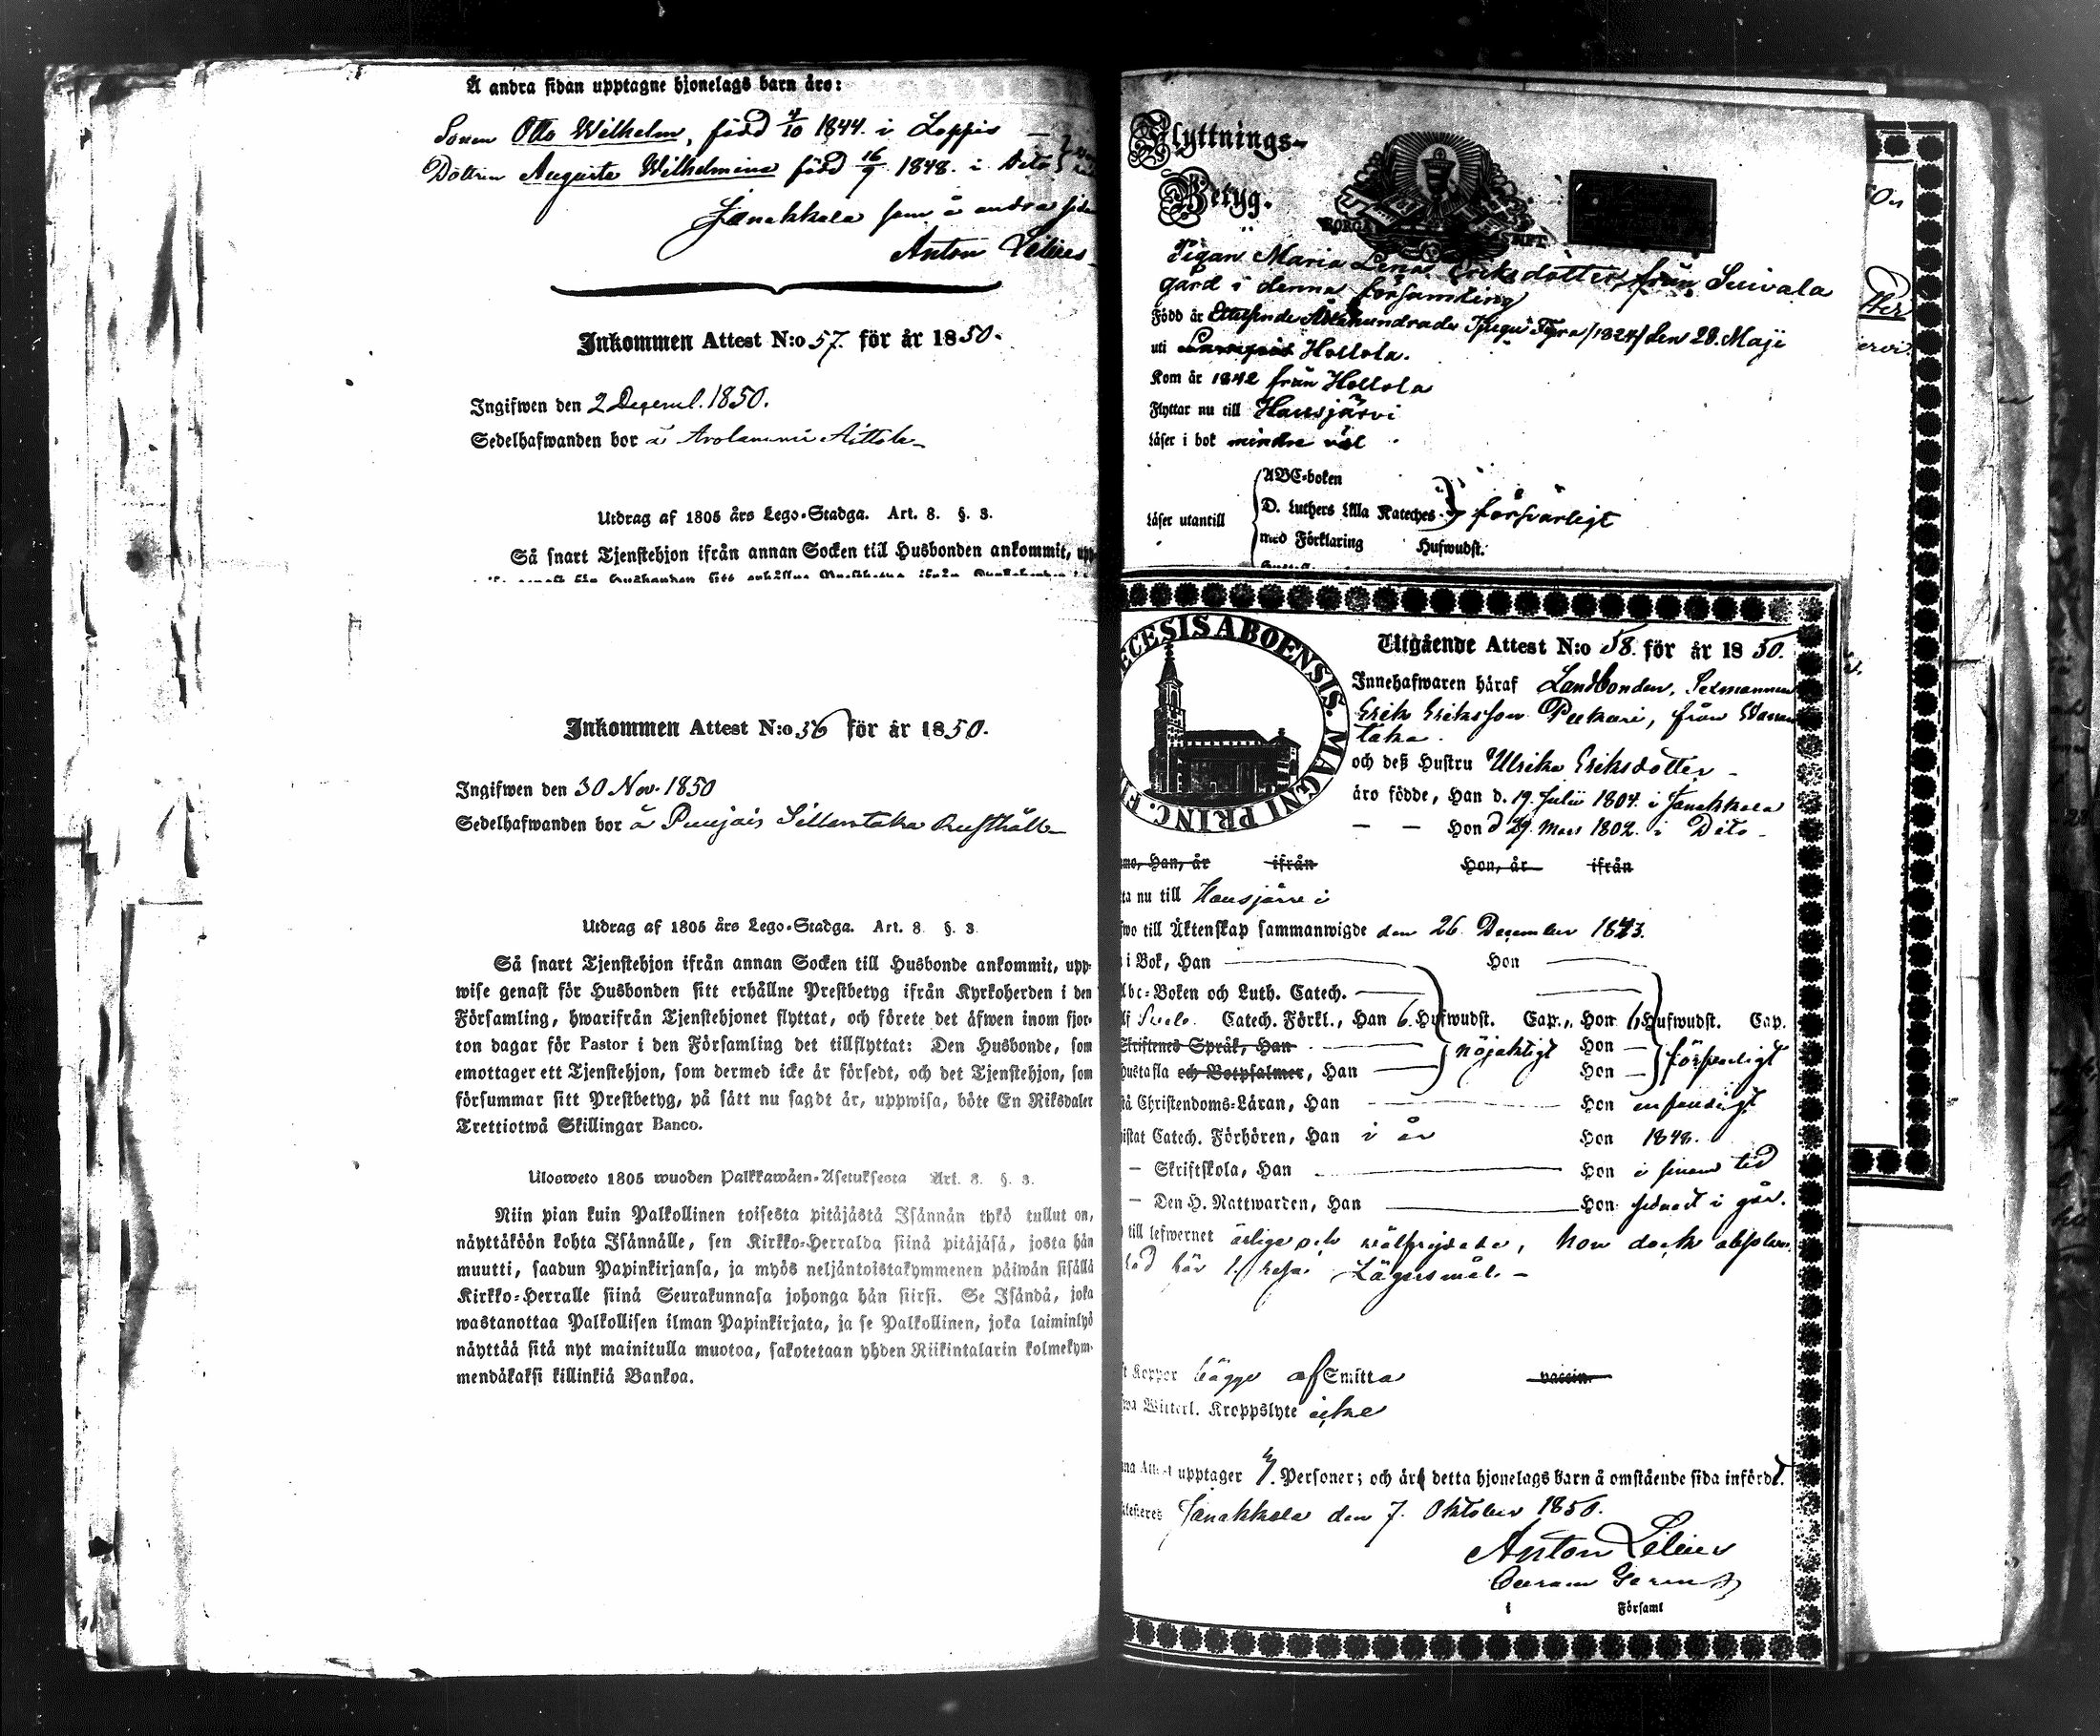 Å andra sidan upptagne hjonelags barn äro:
Sonen Otto Wilhelm, född 4/10 1844. i Loppis
Dottren Augusta Wilhelmina född 16/9 1848. i Dito
Janakkala som å andra sidan
Anton Lilius
Inkommen Attest N:o 57. för år 1850.
Ingifwen den 2 Decemb. 1850.
Sedelhafwanden bor å Arolammi Aittola
Utdrag af 1805 års Lego-Stadga. Art. 8. §. 3.
Så snart Tjenstehjon ifrån annan Socken till Husbonden ankommit, upp-
Inkommen Attest N:o 56 för år 1850.
Ingifwen den 30 Nov. 1850
Sedelhafwanden bor å Puujais Sillanstaka Rusthåll
Utdrag af 1805 års Lego-Stadga. Art. 8. §. 3.
Så snart Tjenstehjon ifrån annan Socken till Husbonde ankommit, upp-
wise genast för Husbonden sitt erhållne Prestbetyg ifrån Kyrkoherden i den
Församling, hwarifrån Tjenstehjonet flyttat, och förete det äfwen inom fjor-
ton dagar för Pastor i den Församling det tillflyttat: Den Husbonde, som
emottager ett Tjenstehjon, som dermed icke är försedt, och det Tjenstehjon, som
försummar sitt Prestbetyg, på sätt nu sagdt är, uppwisa, böte En Riksdaler
Trettiotwå Skillingar Banco.
Ulosweto 1805 wuoden Palkkawäen-Asetuksesta Art. 8. §. 3.
Niin pian kuin Palkollinen toisesta pitäjästä Isännän tykö tullut on,
näyttäköön kohta Isännälle, sen Kirkko-Herralda siinä pitäjäsä, josta hän
muutti, saadun Papinkirjansa, ja myös neljäntoistakymmenen päiwän sisällä
Kirkko-Herralle siinä Seurakunnasa johonga hän siirsi. Se Isändä, joka
wastanottaa Palkollisen ilman Papinkirjata, ja se Palkollinen, joka laiminlyö
näyttää sitä nyt mainitulla muotoa, sakotetaan yhden Riikintalarin kolmekym-
mendäkaksi killinkiä Bankoa.
Flyttnings-
Betyg.
BORGÅ STIFT.
Pigan Maria Lena Eriksdotter, från Suivala
gård i denna församling
Född år Ettusende Åttahundrade Tjugu Fyra /1824/ den 28. Maji
uti Hollola.
Kom år 1842 från Hollola
Flyttar nu till Hausjärvi
Läser i bok mindre väl
ABC-boken
Läser utantill D. Luthers Lilla Kateches försvarligt
med Förklaring Hufwudst.
ECESIS ABOENSIS. MAGNI PRINC. F
Utgående Attest N:o 58. för år 1850.
Innehafwaren häraf Landbonden, Sexmannen
Erik Eriksson Pekari, från
taka.
och deß Hustru Ulrika Eriksdotter
äro födde, Han d. 19. Julii 1804. i Janakkala
Hon d 29. Mars 1802. i Dito
mo, Han, år ifrån Hon, år ifrån
ta nu till Hausjärvi
wo till Äktenskap sammanwigde den 26. December 1843.
i Bok, Han Hon
Abc-Boken och Luth. Catech.
Catech. Förkl., Han 6. Hufwudst. Cap., Hon 6 Hufwudst. Cap.
Skriftenes Språk, Han nöjaktigt Hon försvarligt
hustafla och Botpsalmer, Han Hon
tå Christendoms-Läran, Han Hon enfaldigt
istat Catech. Förhören, Han i år Hon 1848.
– Skriftskola, Han Hon i sinom tid
– Den H. Nattwarden, Han Hon sednast i går.
till lefwernet ärliga och välfrejdade, hon dock absolve-
rad här 1. resa Lägersmål. –
t Koppor bägge af Smitta vaccin.
wa Witterl. Kroppslyte icke
na Attest upptager Personer; och äro detta hjonelags barn å omstående sida införd.
Janakkala den 7. Oktober 1850.
Anton Lilius
i Församl